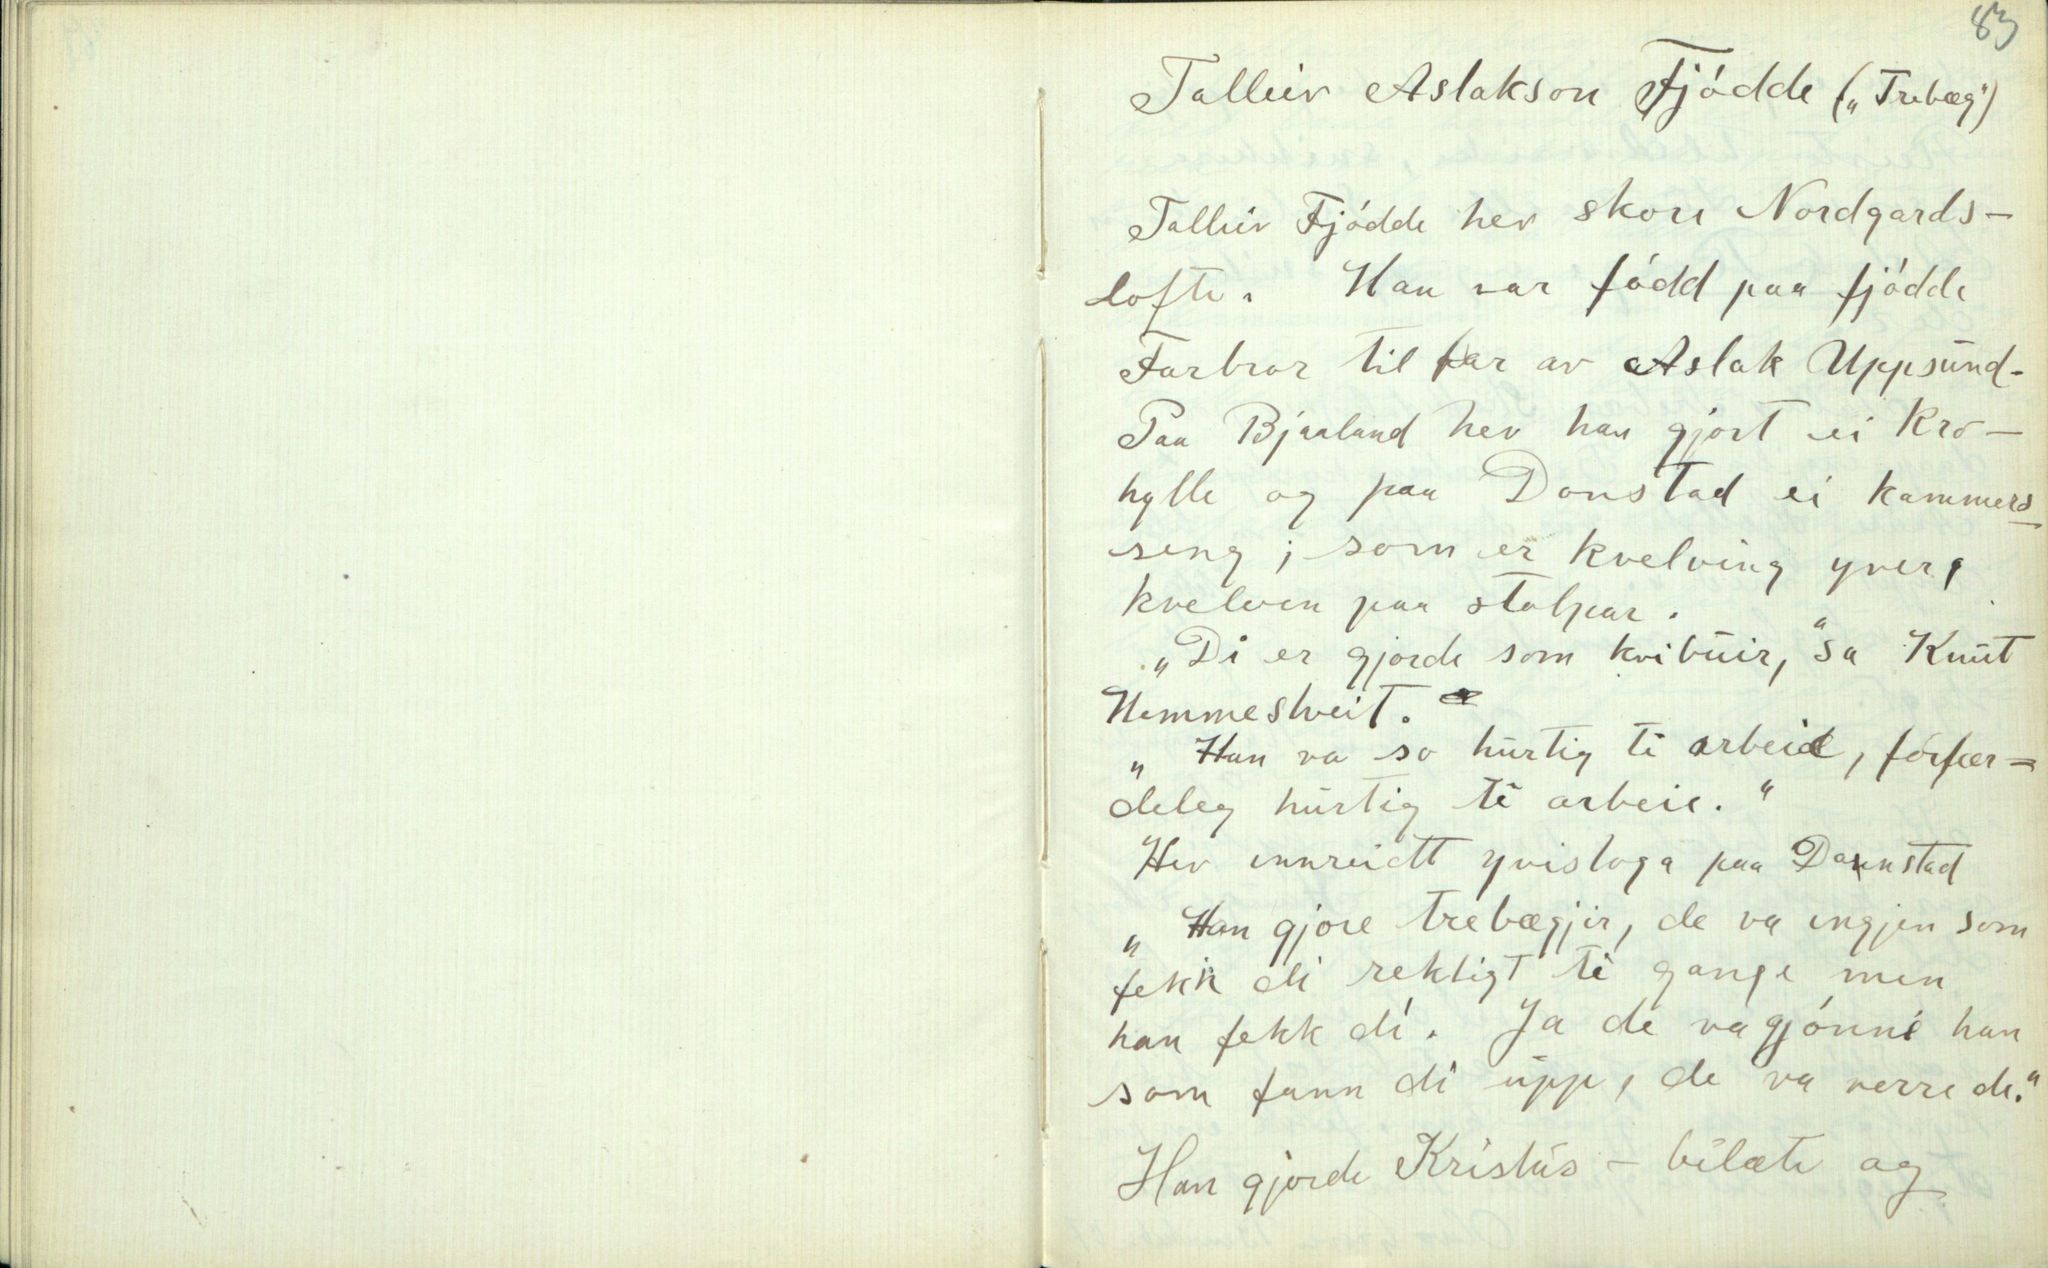 83
Talleiv Aslakson Fjódde („Trebæg")
Talleiv Fjódde hev skore Nordgards-
lofte. Han var fódd paa fjódde
Farbror til far av Aslak Uppsund-
Paa Bjaaland hev han gjort ei Kro-
hylle og paa Donstad ei kammers
seng; som er kvelving yver,
kvelven paa stolpar.
„Di er gjorde som kvibuir," sa Knut
Hemmestveit.
„Han va so hurtig ti arbeie, fórfær-
deleg hurtig ti arbeie."
Hev innreidt yvistoga paa Donnstad
„Han gjore trebægjir, de va ingjen som
fekk di rektigt ti gange men
han fekk di. Ja de va gjónni han
som fann di upp, de va verre de."
Han gjorde Kristus-bilæte og